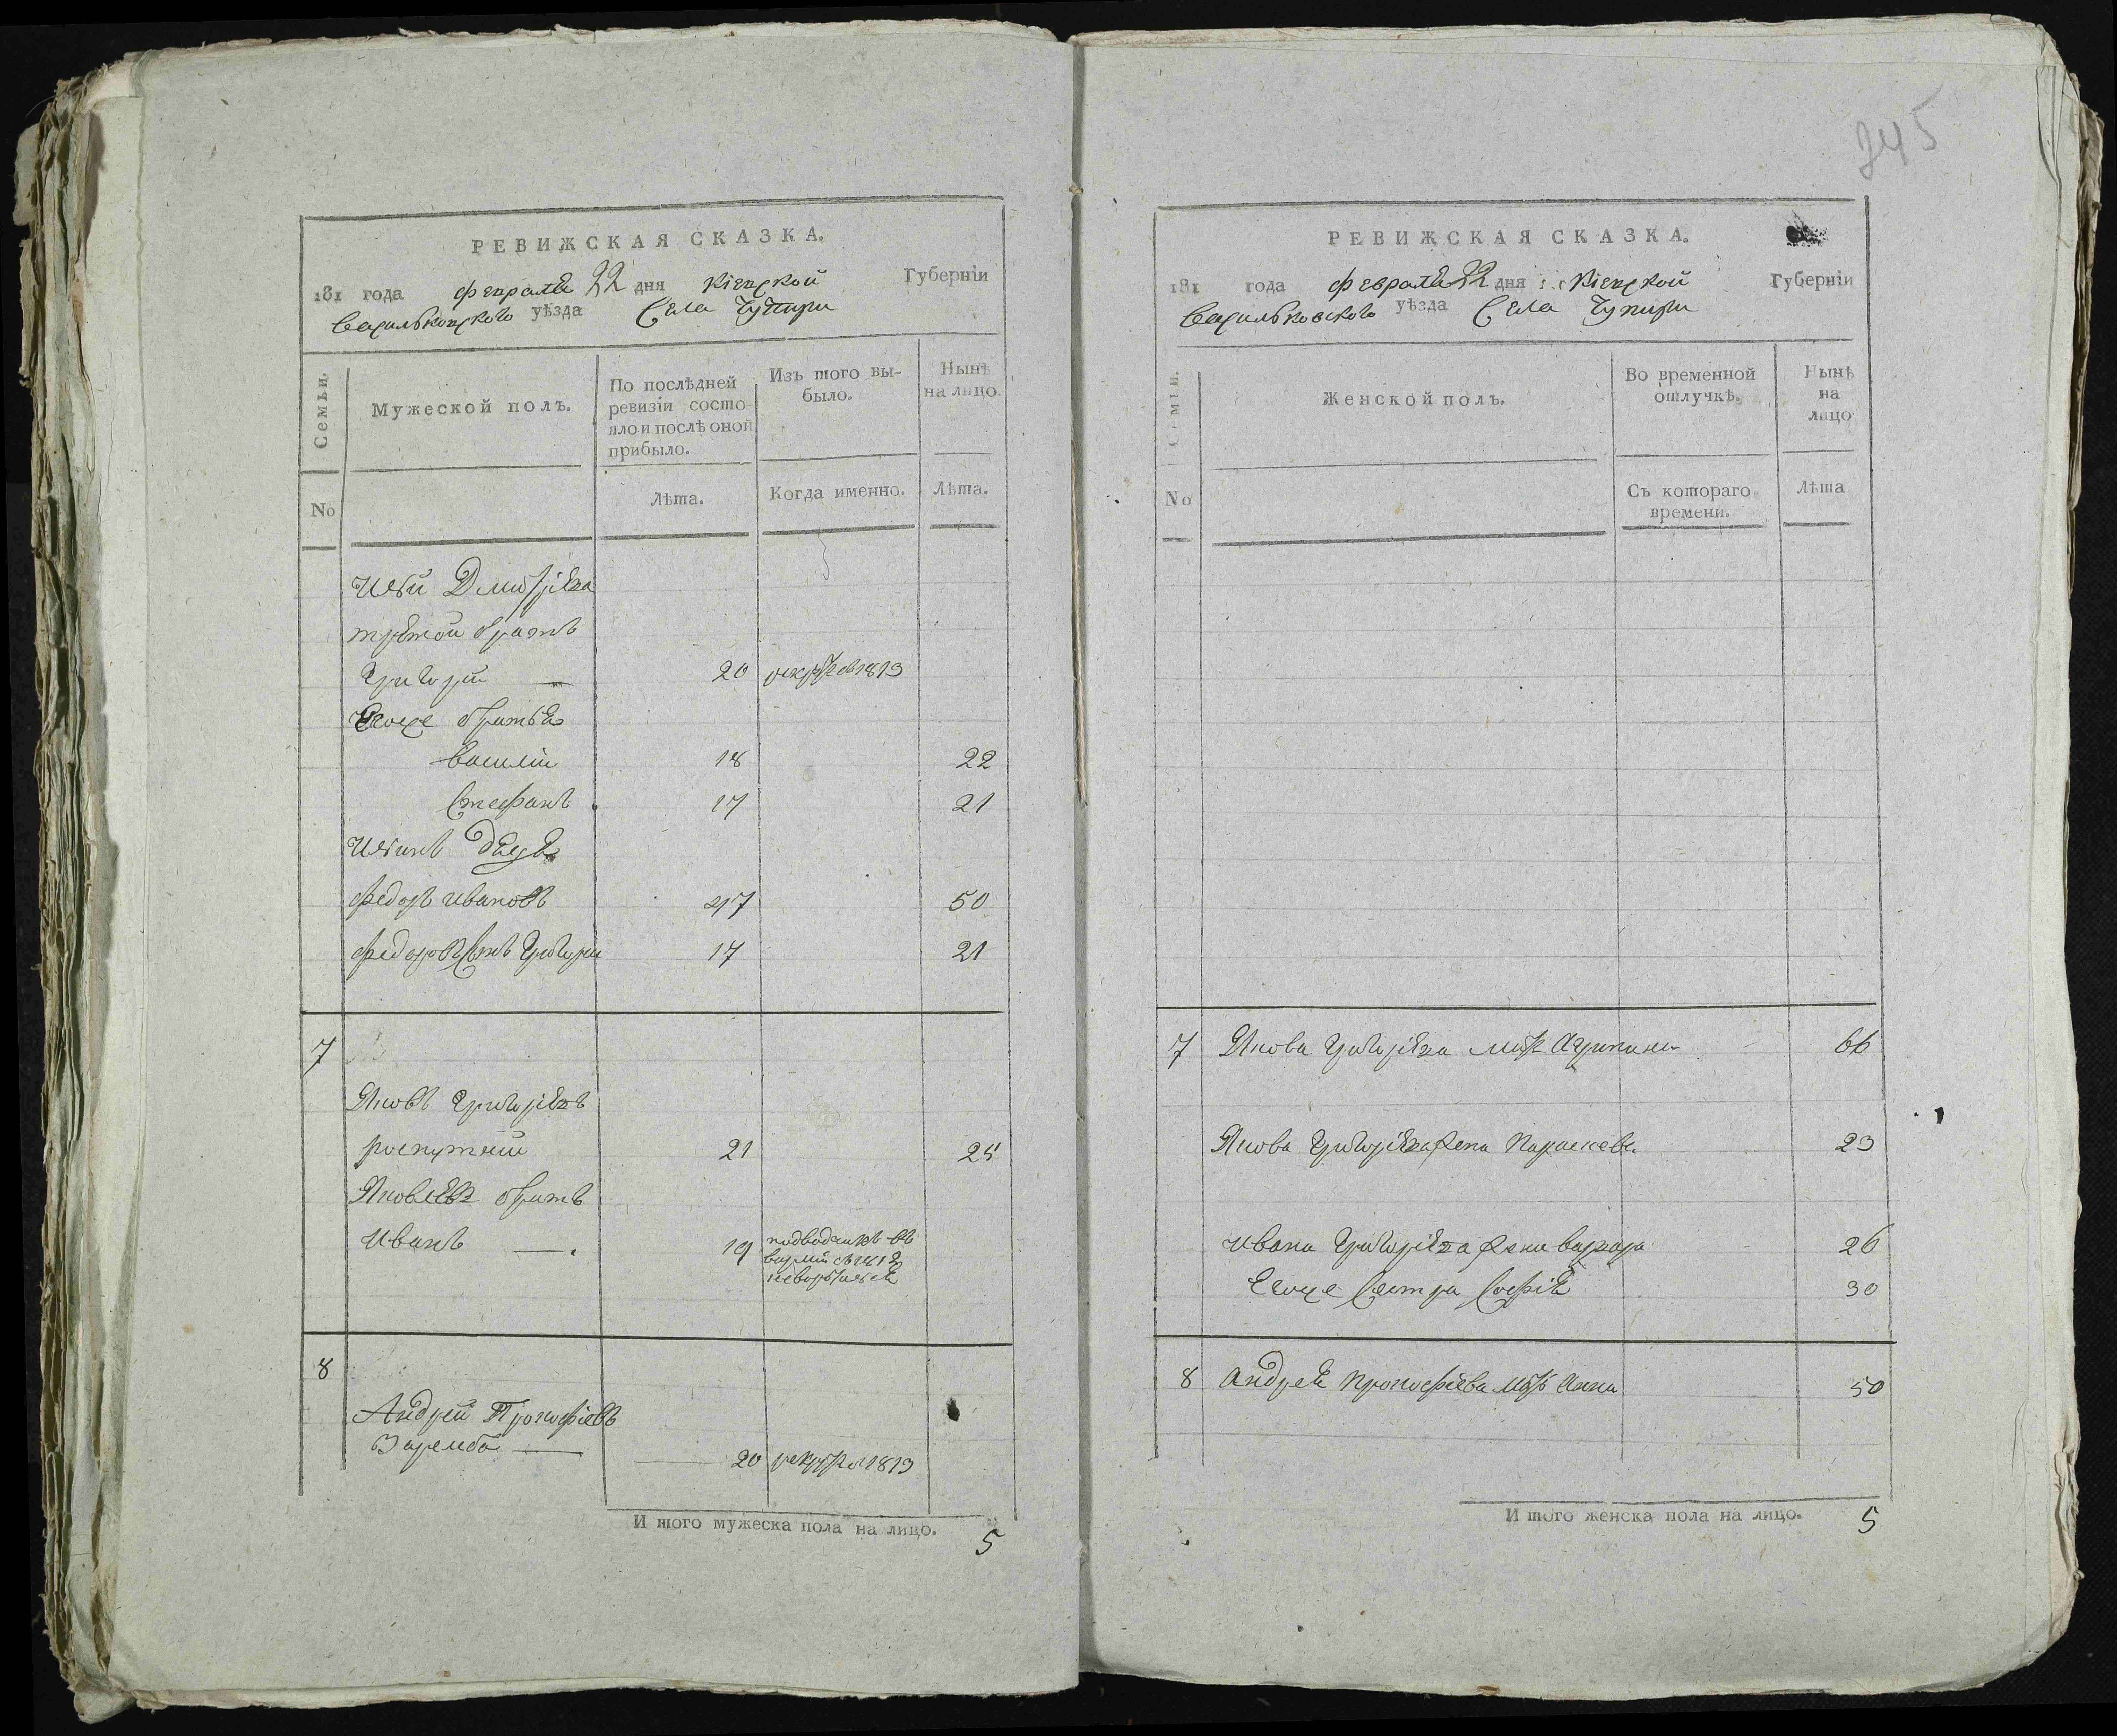 245
РЕВИЖСКАЯ СКАЗКА.
181 года февраля 22 дня Кіевской Губерніи
Васильковского уѣзда Села Чупиры
Семьи.
Мужеской полъ.
По послѣдней ревизіи состояло и послѣ оной прибыло.
Изъ того выбыло.
Нынѣ на лицо.
No
Лѣта.
Когда именно.
Лѣта.
Дмитріева
третой братъ
Григорій — 20 1813
Егоже братья
Василій 18 22
Стефанъ 17 21
дядя
Федоръ Ивановъ 47 50
Федоровъ сынъ Григорій 17 21
7
Яковъ Григоріевъ
21 25
Яковлевъ братъ
Иванъ — 19 подводчикъ въ
8
Андрей Прокофіевъ
Заремба — 20 1813
И того мужеска пола на лицо. 5
РЕВИЖСКАЯ СКАЗКА.
181 года февраля 22 дня Кіевской Губерніи
Васильковского уѣзда Села Чупиры
Семьи.
Женской полъ.
Во временной отлучкѣ.
Нынѣ на лицо
No
Съ котораго времени.
Лѣта
7 Якова Григоріева мать Агрипина 66
Якова Григоріева жена Параскева 23
Ивана Григоріева жена Варвара 26
Егоже сестра Софія 30
8 Андрея Прокофіева мать Анна 50
И того женска пола на лицо. 5